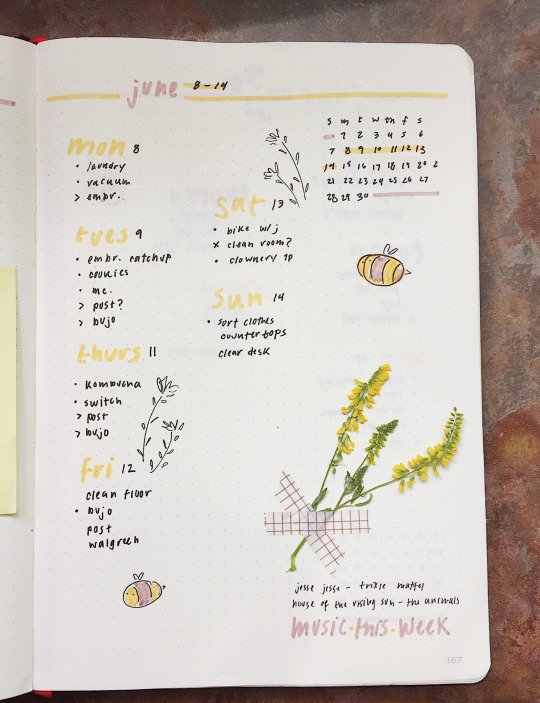 june 8-14
s m t w th f s
1 2 3 4 5 6
7 8 9 10 11 12 13
14 15 16 17 18 19 20
21 22 23 24 25 26 27
28 29 30
mon 8
• laundry
• vacuum
> embr.
tues 9
• embr. catchup
• cookies
• me.
> post?
> bujo
thurs 11
• kombucha
• switch
> post
> bujo
fri 12
clean floor
• bujo
post
walgreen
sat 13
• bike w/j
x clean room?
• clownery 1p
sun 14
• sort clothes
countertops
clear desk
jesse jesse - trixie mattel
house of the rising sun - the animals
music • this • week
167